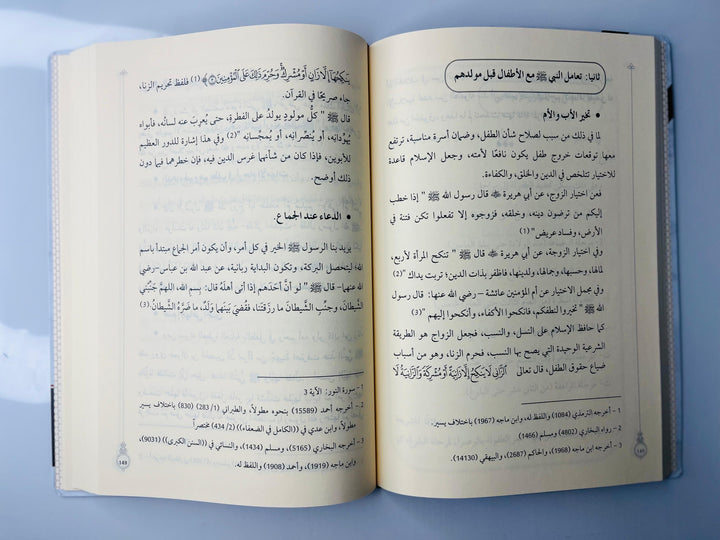 ثانيا: تعامل النبي ﷺ مع الأطفال قبل مولدهم
• تخير الأب والأم
لما في ذلك من سبب لصلاح شأن الطفل، وضمان أسرة مناسبة، ترتفع
معها توقعات خروج طفل يكون نافعًا لأمته، وجعل الإسلام قاعدة
للاختيار تتلخص في الدين والخلق، والكفاءة.
فعن اختيار الزوج، عن أبي هريرة ﷺ قال رسول الله ﷺ " إذا خطب
إليكم من ترضون دينه، وخلقه، فزوجوه إلا تفعلوا تكن فتنة في
الأرض، وفساد عريض" (1)
وفي اختيار الزوجة، عن أبي هريرة قال ﷺ " تنكح المرأة لأربع،
لمالها، وحسبها، وجمالها، ولدينها، فاظفر بذات الدين؛ تربت يداك" (2)
وفي مجمل الاختيار عن أم المؤمنين عائشة – رضي الله عنها: قال رسول
الله ﷺ " تخيروا لنطفكم، فانكحوا الأكفاء، وأنكحوا إليهم " (3)
كما حافظ الإسلام على النسل، والنسب، فجعل الزواج هو الطريقة
الشرعية الوحيدة التي يصح بها النسب، فحرم الزنا، وهو من أسباب
ضياع حقوق الطفل، قال تعالى ﴿ٱلزَّانِي لَا يَنكِحُ إِلَّا زَانِيَةً أَوْ مُشْرِكَةً وَٱلزَّانِيَةُ لَا
1 – أخرجه الترمذي (1084) واللفظ له، وابن ماجه (1967) باختلاف يسير.
2 – رواه البخاري (4802) ومسلم (1466)
3 – أخرجه ابن ماجه (1968)، والحاكم (2687)، والبيهقي (14130).
يَنكِحُهَآ إِلَّا زَانٍ أَوْ مُشْرِكٌ وَحُرِّمَ ذَٰلِكَ عَلَى ٱلْمُؤْمِنِينَ ٣﴾ (1) فلفظ تحريم الزنا،
جاء صريحًا في القرآن.
قال ﷺ " كلُّ مولودٍ يولدُ على الفطرةِ، حتى يُعربَ عنه لسانُه، فأبواه
يُهوِّدانِه، أو يُنصِّرانِه، أو يُمجِّسانِه " (2) وفي هذا إشارة للدور العظيم
للأبوين، فإذا كان من شأنهما غرس الدين فيه، فإن خطرهما فيما دون
ذلك أوضح.
• الدعاء عند الجماع.
يريد بنا الرسول ﷺ الخير في كل أمر، وأن يكون أمر الجماع مبتدأ باسم
الله؛ ليتحصل البركة، وتكون البداية ربانية، عن عبد الله بن عباس–رضي
الله عنهما– قال ﷺ " لو أنَّ أحَدَهم إذا أتى أهلَهُ قال: بسمِ الله، اللهمَّ جَنِّبْني
الشَّيطانَ، وجنِّبِ الشَّيطانَ ما رزَقتَنا، فقُضِيَ بَينَهما ولَدٌ، ما ضَرَّهُ الشَّيطانُ". (3)
1 – سورة النور: الآية 3
2 – أخرجه أحمد (15589) بنحوه مطولاً، والطبراني (1/ 283) (830) باختلاف يسير
مطولاً، وابن عدي في ((الكامل في الضعفاء)) (2/ 434) مختصراً
3 – أخرجه البخاري (5165)، ومسلم (1434)، والنسائي في ((السنن الكبرى)) (9031)،
وابن ماجه (1919)، وأحمد (1908) واللفظ له.